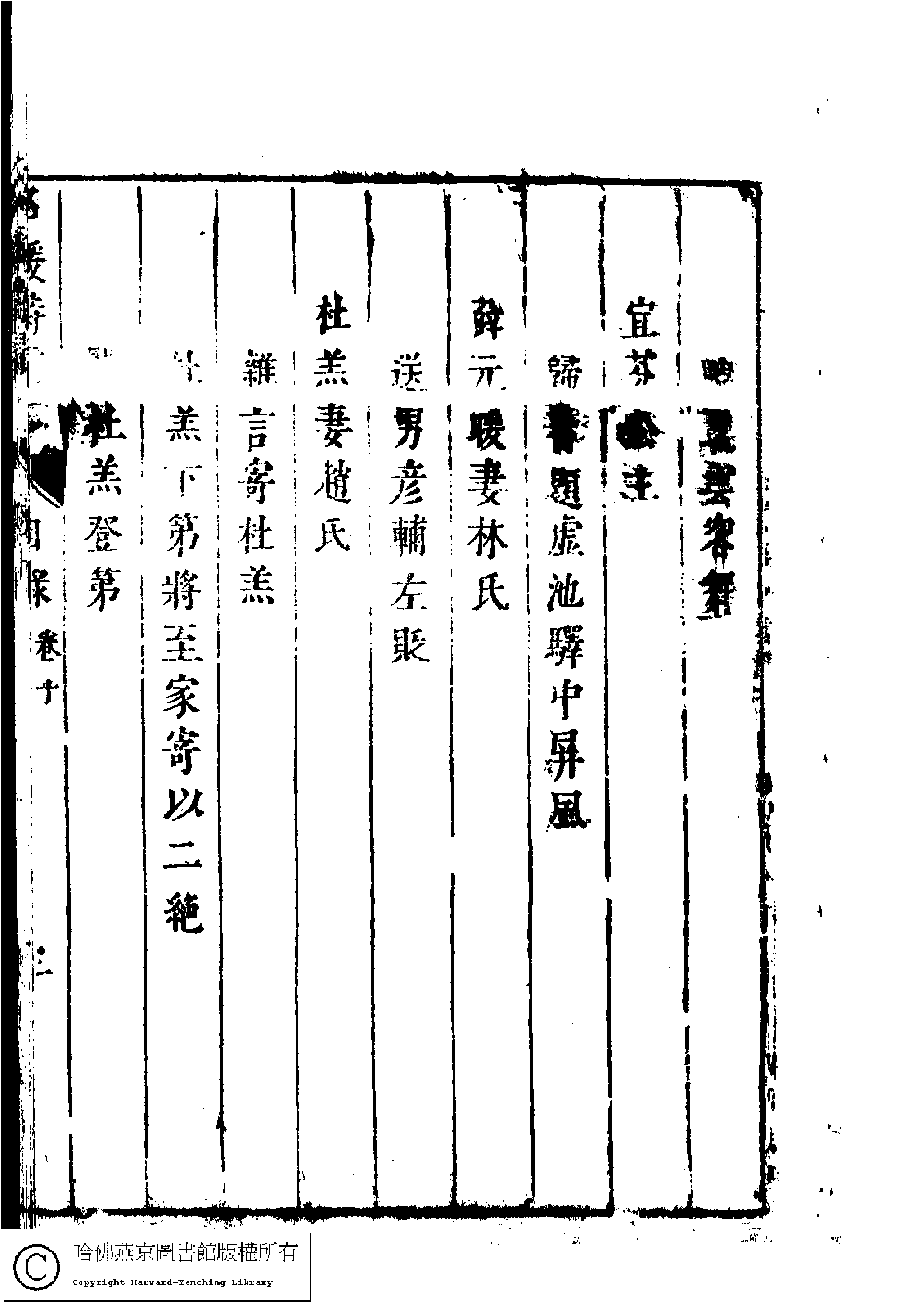 雲容舞
宜芬公主
歸蕃題虛池驛中屏風
薛元暖妻林氏
送男彦輔左貶
杜羔妻趙氏
雜言寄杜羔
杜羔下第將至家寄以二絶
杜羔登第
名媛詩歸 目錄 卷十
哈佛燕京圖書館版權所有
Copyright Harvard-Yenching Library